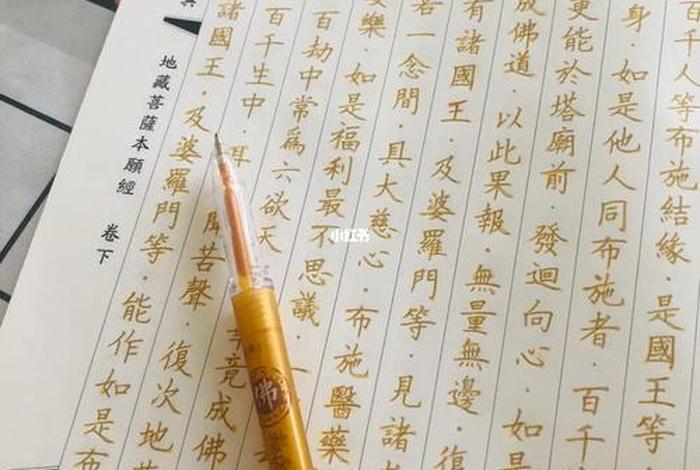 百千人等布施結緣．是國王等
身．如是他人同布施者．百千
更能於塔廟前．發迴向心．如是
成佛道．以此果報．無量無邊．復
有諸國王．及婆羅門等．見諸
若一念間．具大慈心．布施醫藥
樂．如是福利最不思議．一
百劫中常為六欲天 竟成佛
百千生中．耳 聞苦聲．復次地
諸國王．及婆羅門等．能作如是布
地藏菩薩本願經 卷下
佛
小红书